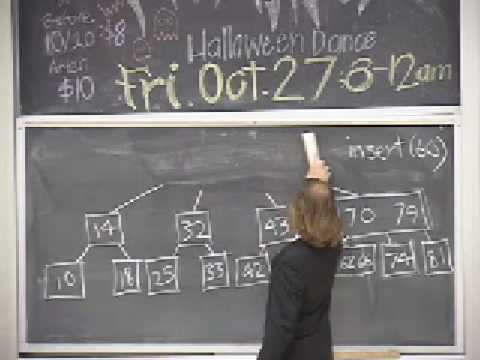 Before
10/20
$8
After
$10
Halloween Dance
Fri. Oct. 27 : 8-12am
insert (60)
14 32 43 70 79
10 18 25 33 42 62 66 74 81